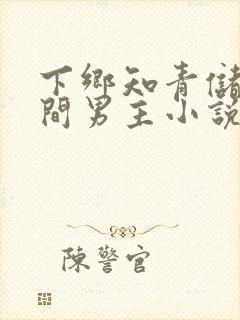 下鄉知青儲
間男主小說
陳警官